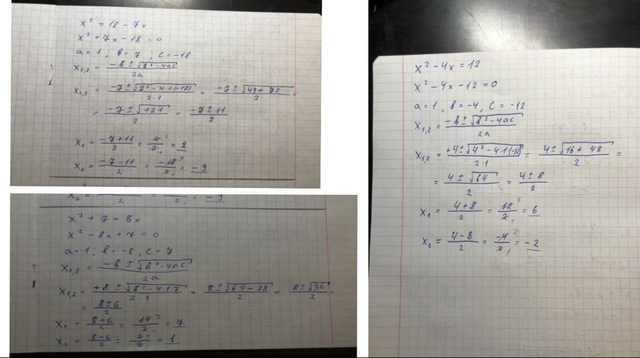 x² = 18 - 7x
x² + 7x - 18 = 0
a = 1 ; b = 7 ; c = -18
x₁,₂ = (-b ± √(b² - 4ac)) / 2a
x₁,₂ = (-7 ± √(7² - 4·1·(-18))) / 2·1 = (-7 ± √(49 + 72)) / 2 =
= (-7 ± √121) / 2 = (-7 ± 11) / 2
x₁ = (-7 + 11) / 2 = 4 / 2 = 2
x₂ = (-7 - 11) / 2 = -18 / 2 = -9
x² + 7 = 8x
x² - 8x + 7 = 0
a = 1 ; b = -8 , c = 7
x₁,₂ = (-b ± √(b² - 4ac)) / 2a
x₁,₂ = (+8 ± √(8² - 4·1·7)) / 2·1 = (8 ± √(64 - 28)) / 2 = (8 ± √36) / 2 =
= (8 ± 6) / 2
x₁ = (8 + 6) / 2 = 14 / 2 = 7
x₂ = (8 - 6) / 2 = 2 / 2 = 1
x² - 4x = 12
x² - 4x - 12 = 0
a = 1 , b = -4 , c = -12
x₁,₂ = (-b ± √(b² - 4ac)) / 2a
x₁,₂ = (+4 ± √(4² - 4·1·(-12))) / 2·1 = (4 ± √(16 + 48)) / 2 =
= (4 ± √64) / 2 = (4 ± 8) / 2
x₁ = (4 + 8) / 2 = 12 / 2 = 6
x₂ = (4 - 8) / 2 = -4 / 2 = -2